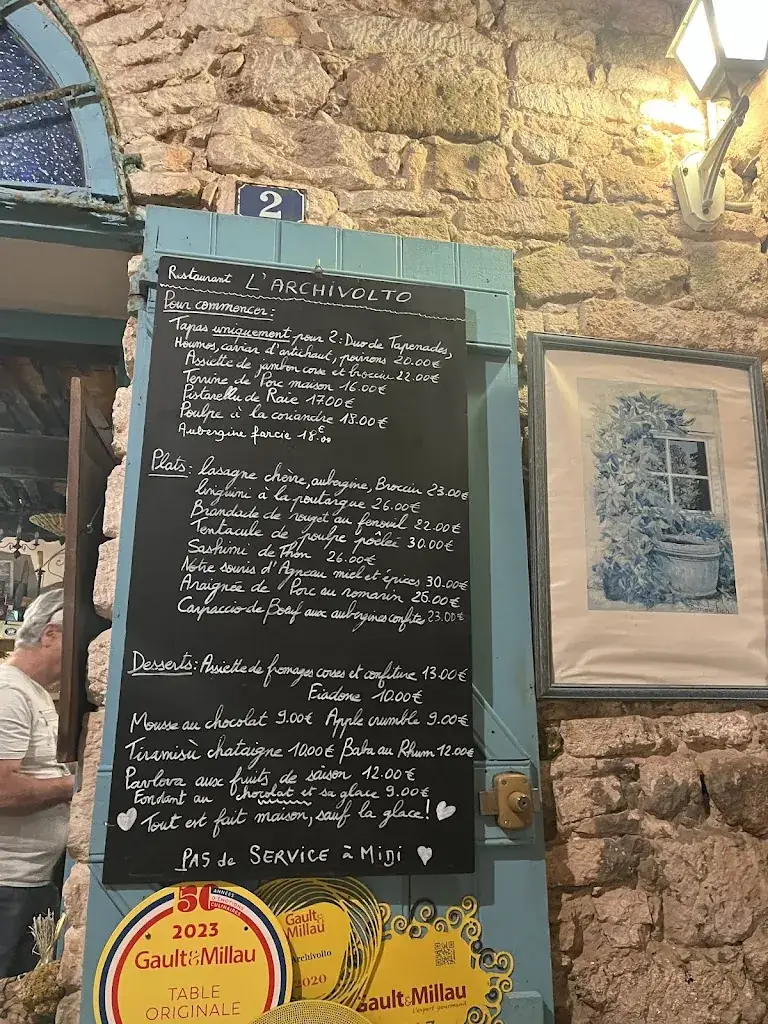 2
Restaurant L'ARCHIVOLTO
Pour commencer:
Tapas uniquement pour 2: Duo de Tapenades,
Houmos, caviar d'artichaut, poivrons 20.00€
Assiette de jambon corse et brocciu 22.00€
Terrine de Porc maison 16.00€
Pistarellu de Raie 17.00€
Poulpe à la coriandre 18.00€
Aubergine farcie 18.00€
Plats: lasagne chèvre, aubergine, Brocciu 23.00€
linguini à la poutargue 26.00€
Brandade de rouget au fenouil 22.00€
Tentacule de poulpe poêlée 30.00€
Sashimi de Thon 26.00€
Notre souris d'Agneau miel et épices 30.00€
Araignée de Porc au romarin 26.00€
Carpaccio de Bœuf aux aubergines confites 23.00€
Desserts: Assiette de fromages corses et confiture 13.00€
Fiadone 10.00€
Mousse au chocolat 9.00€ Apple crumble 9.00€
Tiramisù chataigne 10.00€ Baba au Rhum 12.00€
Pavlova aux fruits de saison 12.00€
Fondant au chocolat et sa glace 9.00€
Tout est fait maison, sauf la glace!
PAS de SERVICE à MIDI
50 ANNÉES
CULINAIRES
2023
Gault&Millau
TABLE
ORIGINALE
Gault&
Millau
Archivolto
2020
Gault&Millau
L'expert gourmand